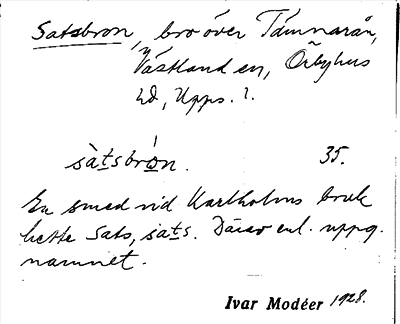 Satsbron, bro över Tämnarån,
Västland sn, Örbyhus
hd, Upps. l.
sàtsbrón. 35.
En smed vid Karlholms bruk
hette Sats, sats. Därav enl. uppg.
namnet.
Ivar Modéer 1928.